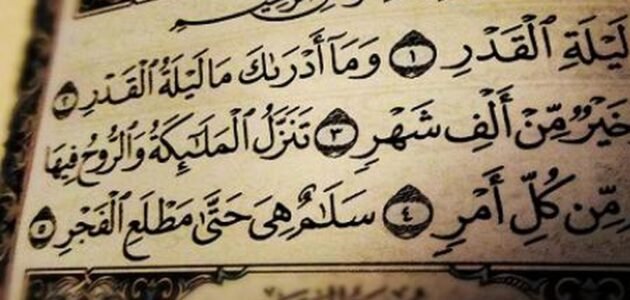 لَيْلَةِ ٱلْقَدْرِ ١ وَمَآ أَدْرَىٰكَ مَا لَيْلَةُ ٱلْقَدْرِ ٢
خَيْرٌ مِّنْ أَلْفِ شَهْرٍ ٣ تَنَزَّلُ ٱلْمَلَٰٓئِكَةُ وَٱلرُّوحُ فِيهَا
مِّن كُلِّ أَمْرٍ ٤ سَلَٰمٌ هِىَ حَتَّىٰ مَطْلَعِ ٱلْفَجْرِ ٥